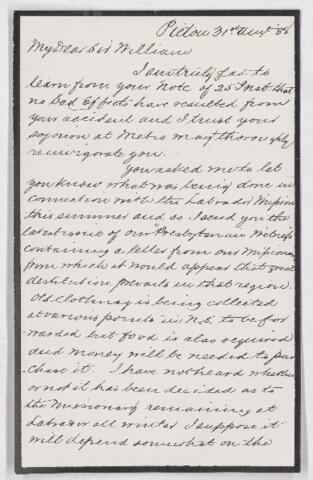 Pictou 31st Augt 86
My Dear Sir William
I am truly glad to
learn from your Note of 25th Inst that
no bad Effects have resulted from
your accident and I trust your
sojourn at Metis may thoroughly
reinvigorate you.
You asked me to let
you know what was being done in
connection with the Labrador Mission
this summer and so I send you the
latest issue of our "Presbyterian Witness
containing a letter from our Missionary
from which it would appear that great
destitution prevails in that region.
Old Clothing is being collected
at various points in N.S. to be for
warded but food is also required
and money will be needed to pur
chase it. I have not heard whether
or not it has been decided as to
the Missionary remaining at
Labrador all winter I suppose it
will depend somewhat on the